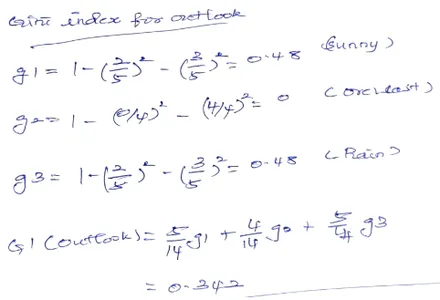 Gini index for outlook
g1 = 1 - (2/5)² - (3/5)² = 0.48 (Sunny)
g2 = 1 - (0/4)² - (4/4)² = 0 (Overcast)
g3 = 1 - (2/5)² - (3/5)² = 0.48 (Rain)
GI (outlook) = 5/14 g1 + 4/14 g2 + 5/14 g3
= 0.342